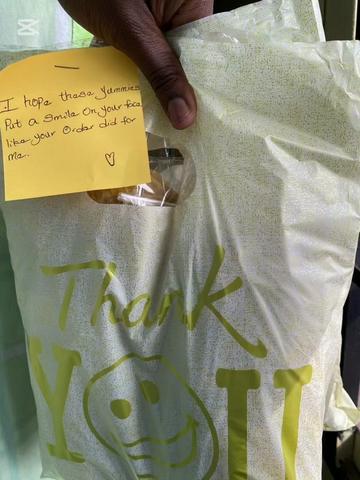 I hope these yummies
Put a smile on your face
like your Order did for
me.
Thank
YOU